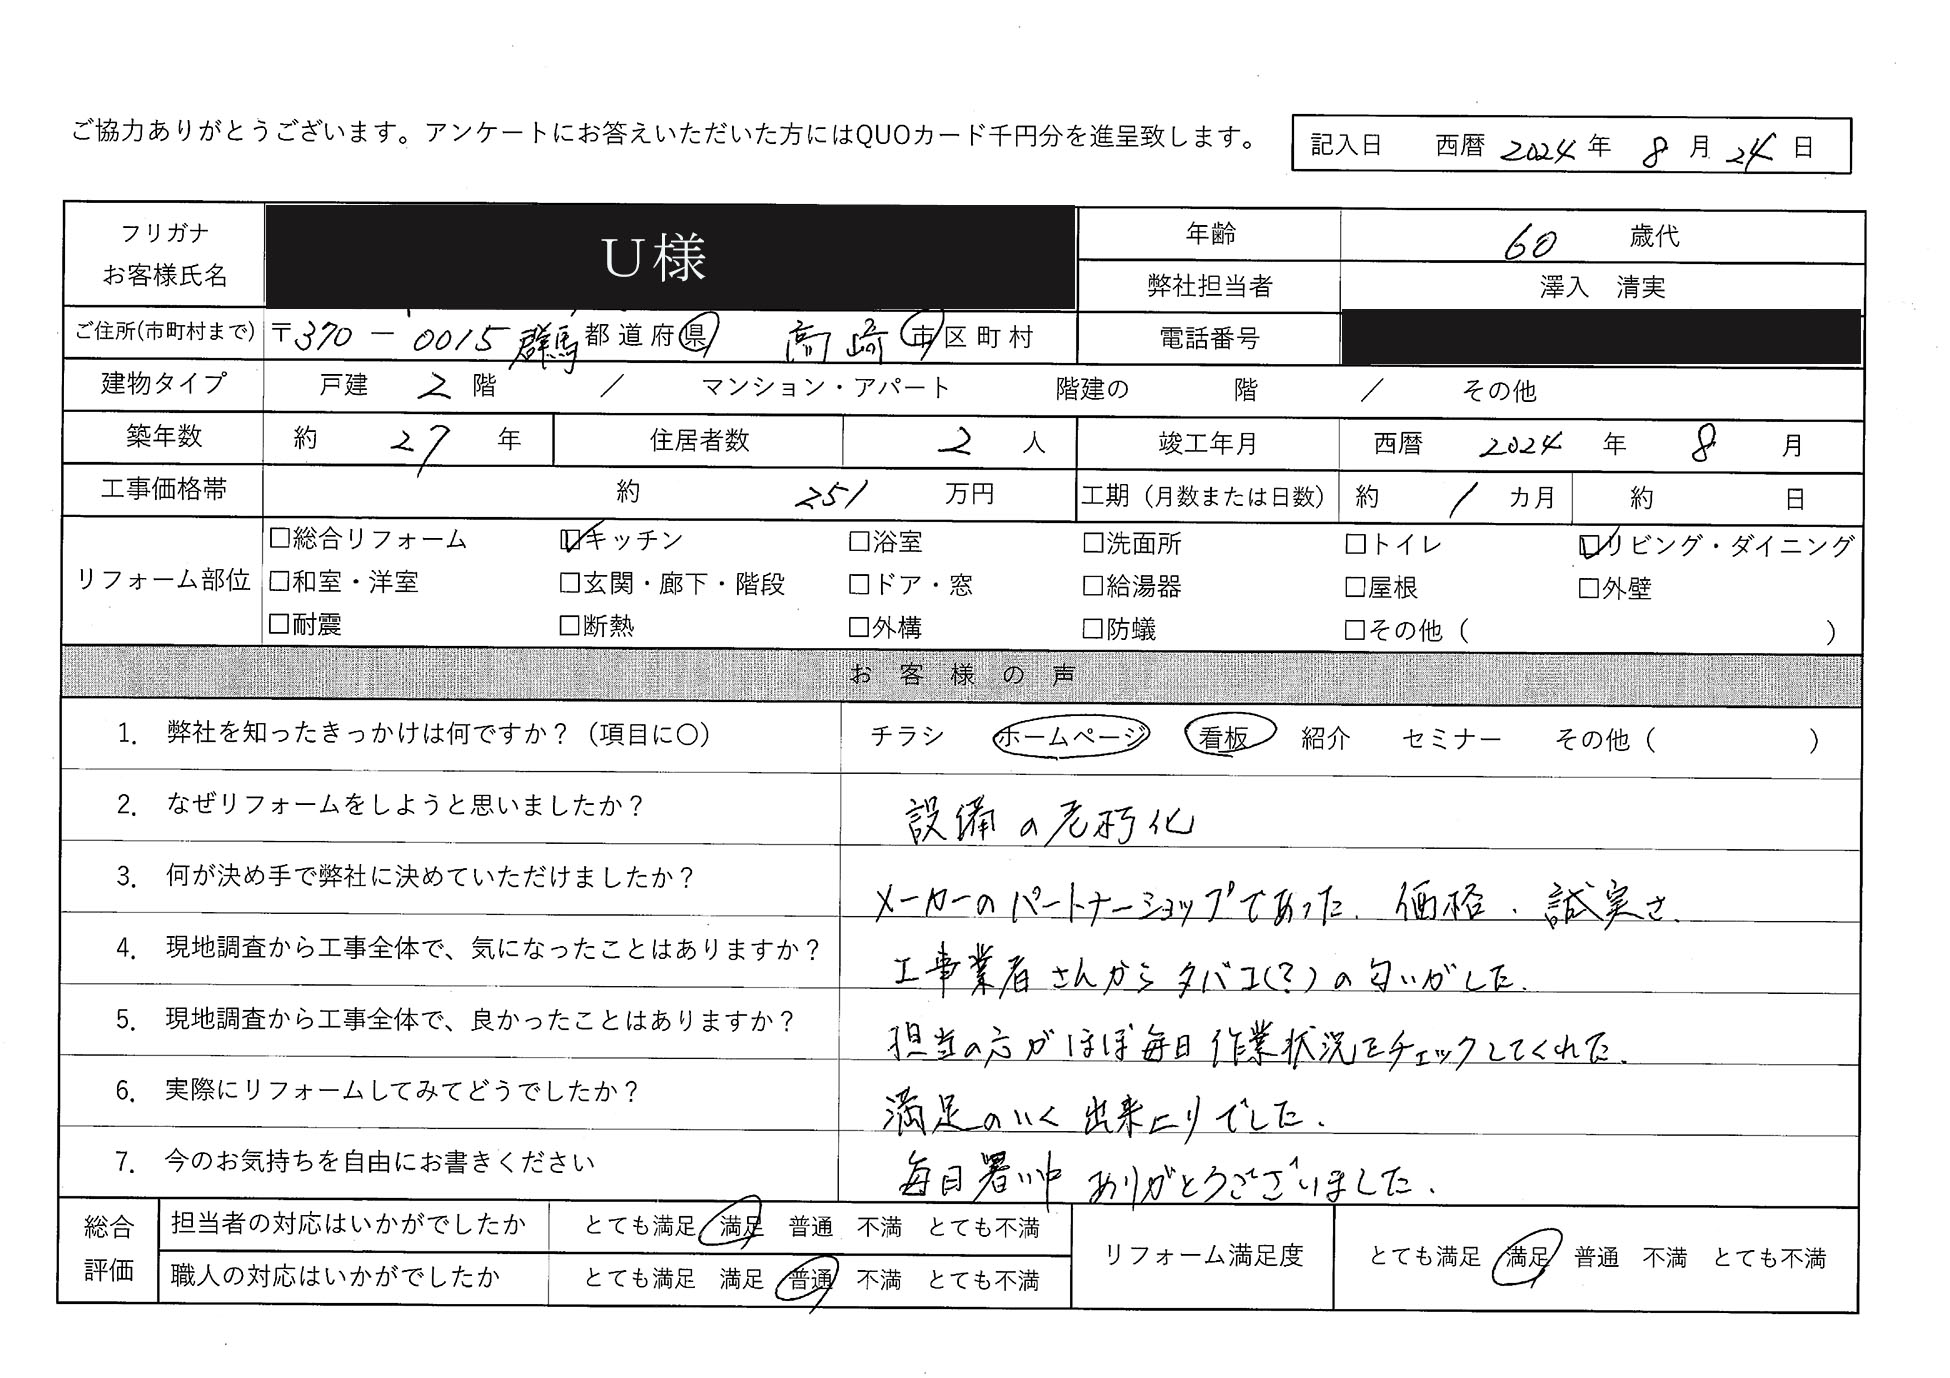 ご協力ありがとうございます。アンケートにお答えいただいた方にはQUOカード千円分を進呈致します。 記入日 西暦 2024 年 8 月 24 日
フリガナ
お客様氏名 U様 年齢 60 歳代
弊社担当者 澤入 清実
ご住所(市町村まで) 〒370-0015 群馬 都道府県 高崎 市区町村 電話番号
建物タイプ 戸建 2 階 / マンション・アパート 階建の 階 / その他
築年数 約 27 年 住居者数 2 人 竣工年月 西暦 2024 年 8 月
工事価格帯 約 251 万円 工期（月数または日数） 約 1 カ月 約 日
リフォーム部位 □総合リフォーム ☑キッチン □浴室 □洗面所 □トイレ ☑リビング・ダイニング
□和室・洋室 □玄関・廊下・階段 □ドア・窓 □給湯器 □屋根 □外壁
□耐震 □断熱 □外構 □防蟻 □その他（ ）
お客様の声
1. 弊社を知ったきっかけは何ですか？（項目に〇） チラシ ホームページ 看板 紹介 セミナー その他（ ）
2. なぜリフォームをしようと思いましたか？ 設備の老朽化
3. 何が決め手で弊社に決めていただけましたか？ メーカーのパートナーショップであった. 価格. 誠実さ.
4. 現地調査から工事全体で、気になったことはありますか？ 工事業者さんからタバコ(?)の匂いがした.
5. 現地調査から工事全体で、良かったことはありますか？ 担当の方がほぼ毎日作業状況をチェックしてくれた.
6. 実際にリフォームしてみてどうでしたか？ 満足のいく出来上りでした.
7. 今のお気持ちを自由にお書きください 毎日暑い中ありがとうございました.
総合評価 担当者の対応はいかがでしたか とても満足 満足 普通 不満 とても不満
職人の対応はいかがでしたか とても満足 満足 普通 不満 とても不満
リフォーム満足度 とても満足 満足 普通 不満 とても不満